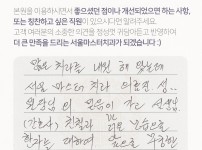 본원을 이용하시면서 좋으셨던 점이나 개선되었으면 하는 사항,
또는 칭찬하고 싶은 직원이 있으시다면 말해주세요.
고객 여러분의 소중한 의견을 정성껏 귀담아듣고 반영하여
더 큰 만족을 드리는 서울마스터치과가 되겠습니다 :)
치과를 내원 해 있는데
서울 마스터 치과 의료진
원장님의
(간호사) 친절과 모습으로
환자를 대하여 앞으로 무궁한